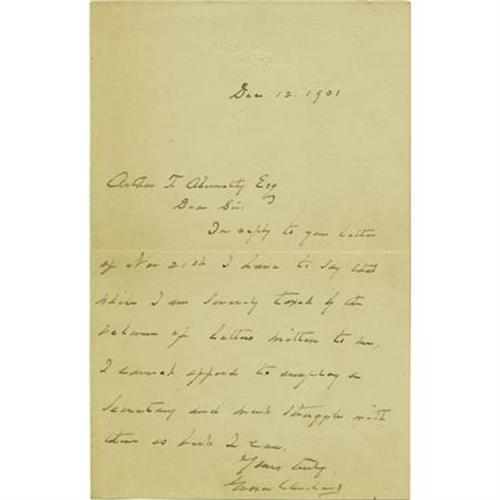 PRINCETON
Dec 12. 1901
Arthur T. Abernethy Esq
Dear Sir:
In reply to your letter
of Nov 21st I have to say that
while I am severely taxed by the
volume of letters written to me,
I cannot afford to employ a
Secretary and must struggle with
them as best I can.
Yours truly
Grover Cleveland